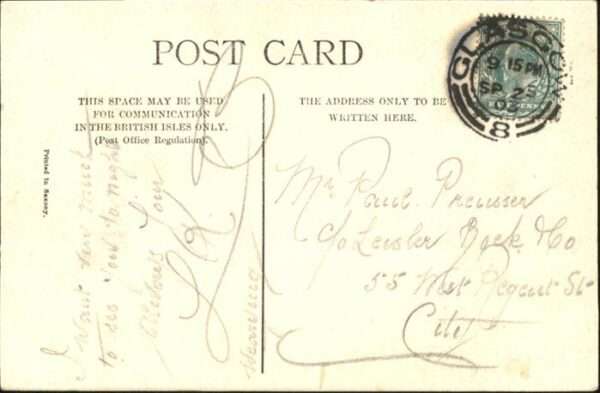 POST CARD
THIS SPACE MAY BE USED
FOR COMMUNICATION
IN THE BRITISH ISLES ONLY.
(Post Office Regulation).
THE ADDRESS ONLY TO BE
WRITTEN HERE.
Printed in Saxony.
GLASGOW
9 15 PM
SP 25
8
I want very much
to see you to night
Mr. Paul. Preusser
c/o Leisler Bock & Co
55 West Regent St
City